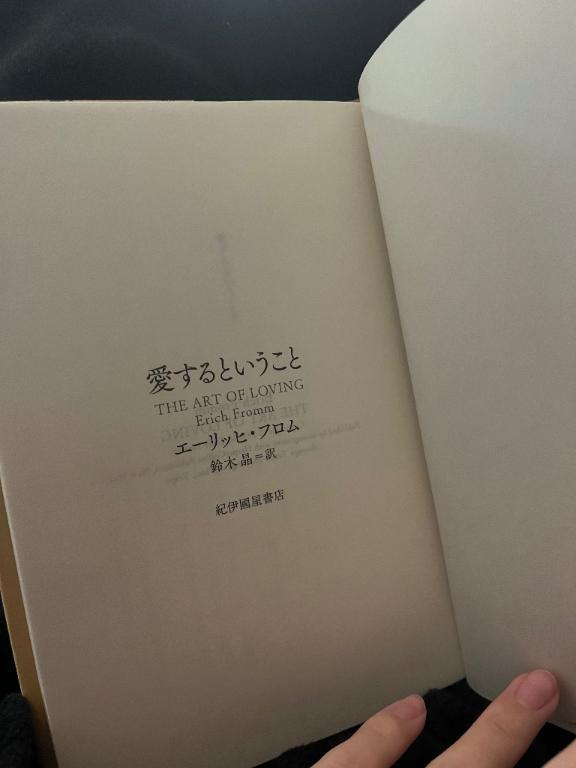 愛するということ
THE ART OF LOVING
Erich Fromm
エーリッヒ・フロム
鈴木晶=訳
紀伊國屋書店